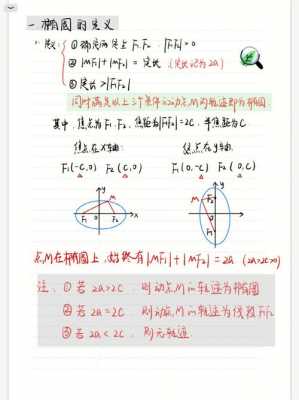 一 椭圆的定义
1. 定义: ① 确定两定点 F₁ F₂ , |F₁F₂|>0
② |MF₁|+|MF₂| = 定长 (定长记为2a)
③ 定长>|F₁F₂|
同时满足以上三个条件的动点M的轨迹即为椭圆
其中, 焦点为F₁、F₂, 焦距为|F₁F₂|=2C, 半焦距为C
焦点在x轴: 焦点在y轴:
F₁(-C,0) F₂(C,0) F₁(0,-C) F₂(0,C)
y M F₁ 0 F₂ x
y M F₂ 0 F₁ x
点M在椭圆上, 始终有|MF₁|+|MF₂|=2a (2a>2c>0)
注: ① 若 2a>2C , 则动点M的轨迹为椭圆
② 若 2a=2C , 则动点M的轨迹为线段F₁F₂
③ 若 2a<2C , 则无轨迹.